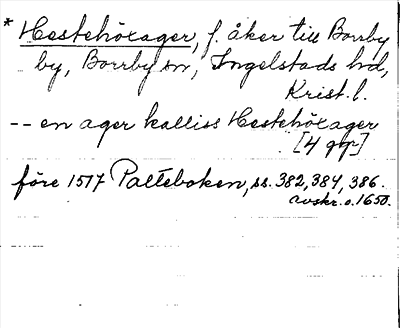 * Hestehörager, f. åker till Borrby
by, Borrby sn, Ingelstads hd,
Krist. l.
-- en ager kalliss Hestehörager
[4 ggr]
före 1517 Palteboken, ss. 382, 384, 386.
avskr. o. 1650.